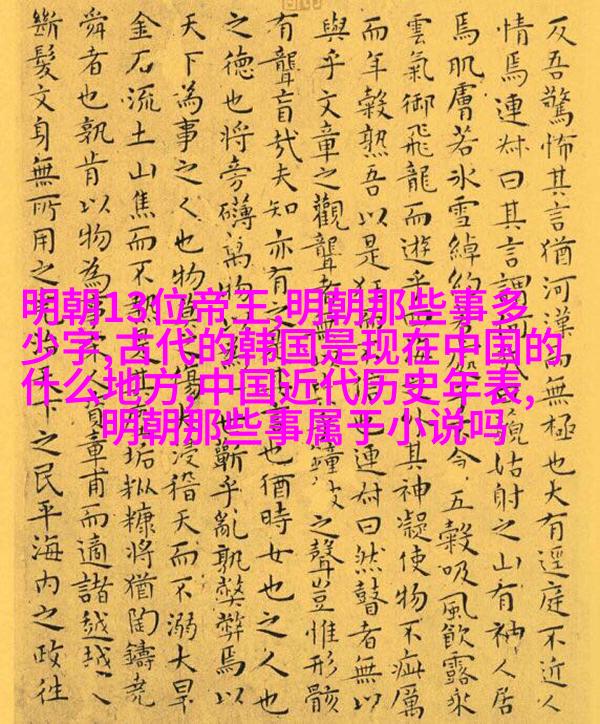 明朝13位帝王,明朝那些事多
少字,古代的韩国是现在中国的
什么地方,中国近代历史年表,
明朝那些事属于小说吗
反吾驚怖其言猶河漢而無極也大有逕庭不近人
情焉連叔曰其言謂藐姑射之山有神人居
焉肌膚若冰雪綽約若五穀吸風飲露乘
雲氣御飛龍而遊乎外其神凝使物不疵厲
而年穀熟吾以是狂信也連叔曰然瞽者無以
與乎文章之觀聾者無鐘之聲豈惟形骸
有聾盲哉夫知亦有之也猶時女也之人也
之德也將旁礴萬物以蘄乎亂孰弊弊焉以
天下為事之人也物莫傷大浸稽天而不溺大旱
金石流土山焦而不熱是其垢粃糠將猶陶鑄堯
舜者也孰肯以物為事人資章甫而適諸越越人
斷髮文身無所用之堯治天下之民平海内之政往